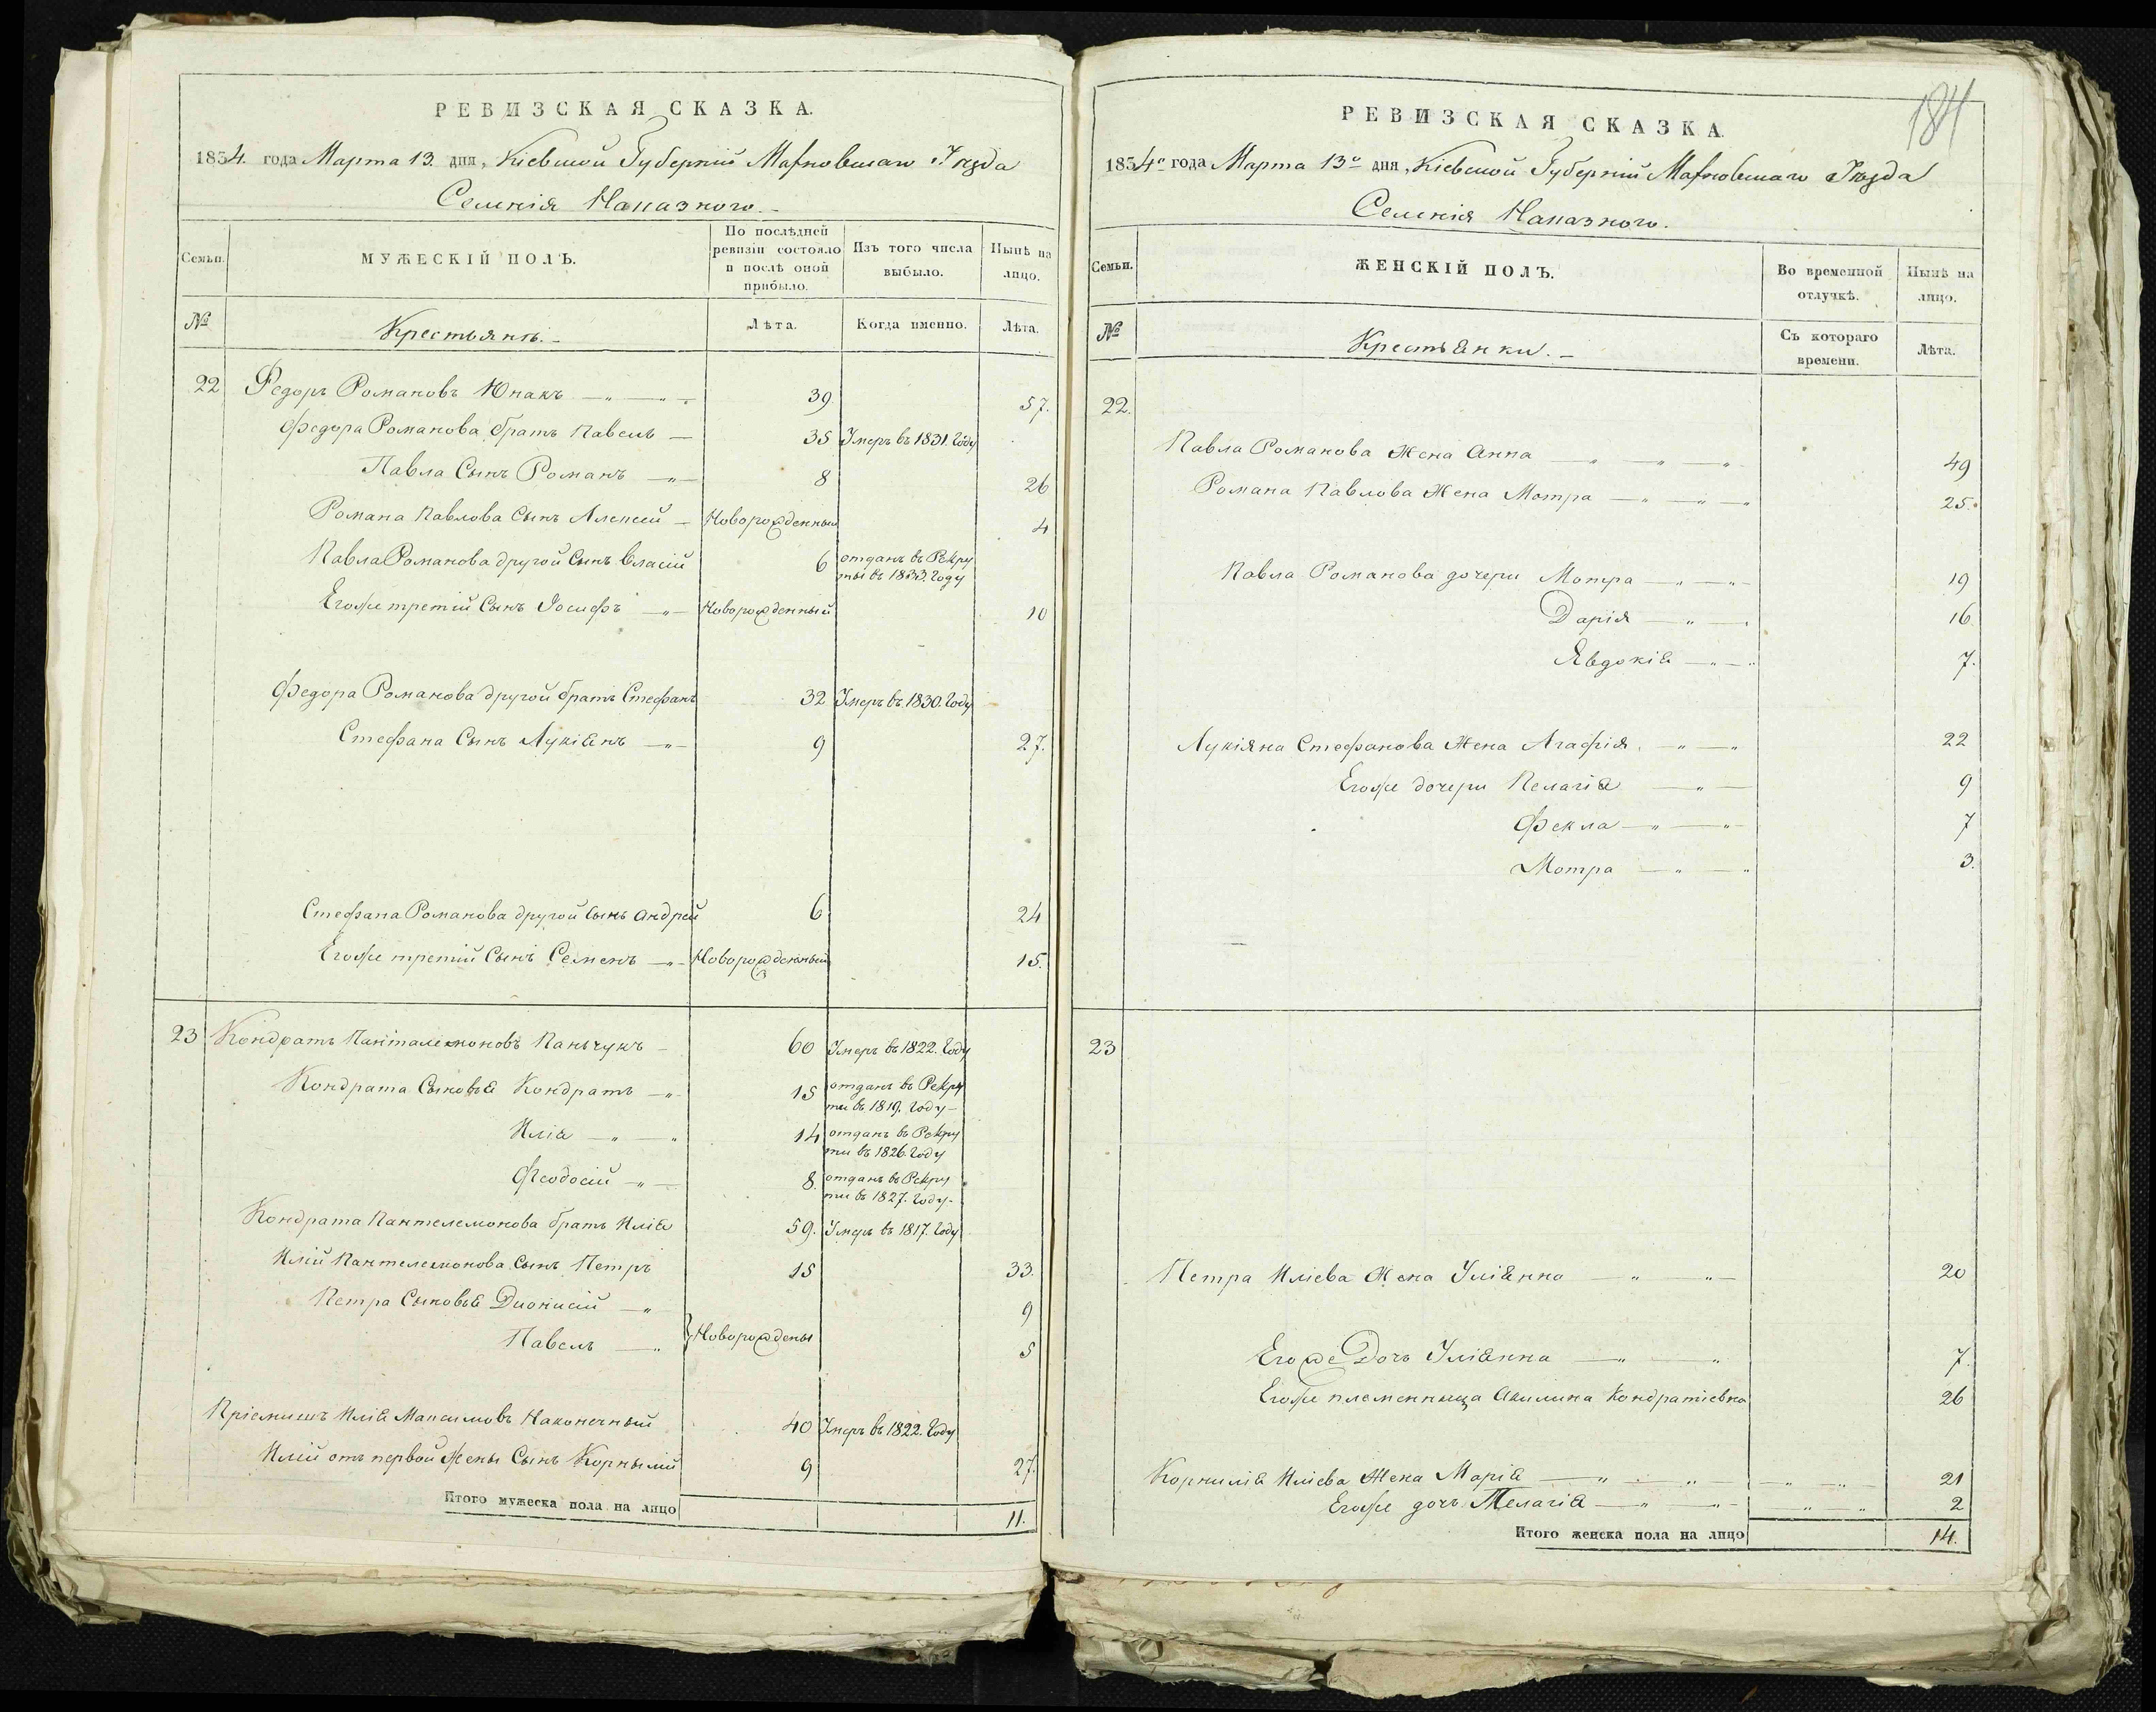 РЕВИЗСКАЯ СКАЗКА.
1834. года Марта 13. дня, Кіевской Губерніи Махновскаго Уѣзда
Селенія Наказного.
Семьи.
МУЖЕСКІЙ ПОЛЪ.
По послѣдней ревизіи состояло и послѣ оной прибыло.
Изъ того числа выбыло.
Нынѣ на лицо.
№
Крестьянѣ.
Лѣта.
Когда именно.
Лѣта.
22 Федоръ Романовъ Юнакъ 39 57.
Федора Романова братъ Павелъ 35 Умеръ въ 1831. Году
Павла Сынъ Романъ 8 26
Романа Павлова Сынъ Алексей Новорожденный 4
Павла Романова другой Сынъ Власій 6 отданъ въ Рекру
ты въ 1833. Году
Егоже третій Сынъ Іосифъ Новорожденный 10
Федора Романова другой братъ Стефанъ 32 Умеръ въ 1830. Году
Стефана Сынъ Лукіянъ 9 27.
Стефана Романова другой Сынъ Андрей 6 24
Егоже третій Сынъ Семенъ Новорожденный 15.
23 Кондратъ Панталемоновъ Панчукъ 60 Умеръ въ 1822. Году
Кондрата Сыновья Кондратъ 15 отданъ въ Рекру
ти въ 1819. Году
Илія 14 отданъ въ Рекру
ти въ 1826. Году
Феодосій 8. отданъ въ Рекру
ти въ 1827. Году
Кондрата Пантелемонова братъ Илія 59. Умеръ въ 1817. Году
Иліи Пантелемонова Сынъ Петръ 15 33.
Петра Сыновья Дионисій 9
Новорождены
Павелъ 5
Пріемишъ Илія Максимовъ Наконечный 40 Умеръ въ 1822. Году
Иліи отъ первой Жены Сынъ Корнылій 9 27.
Итого мужеска пола на лицо 11.
184
РЕВИЗСКАЯ СКАЗКА.
1834го года Марта 13го дня, Кіевской Губерніи Махновскаго Уѣзда
Селенія Наказного.
Семьи.
ЖЕНСКІЙ ПОЛЪ.
Во временной отлучкѣ.
Нынѣ на лицо.
№
Крестьянки.
Съ котораго времени.
Лѣта.
22.
Павла Романова Жена Анна 49
Романа Павлова Жена Мотра 25.
Павла Романова дочери Мотра 19
Дарія 16
Явдокія 7.
Лукіяна Стефанова Жена Агафія 22
Егоже дочери Пелагія 9
Фекла 7
Мотра 3.
23
Петра Иліева Жена Уліянна 20
Егоже Дочь Уліянна 7.
Егоже племенница Акилина Кондратіевна 26
Корнилія Иліева Жена Марія 21
Егоже дочь Пелагія 2
Итого женска пола на лицо 14.